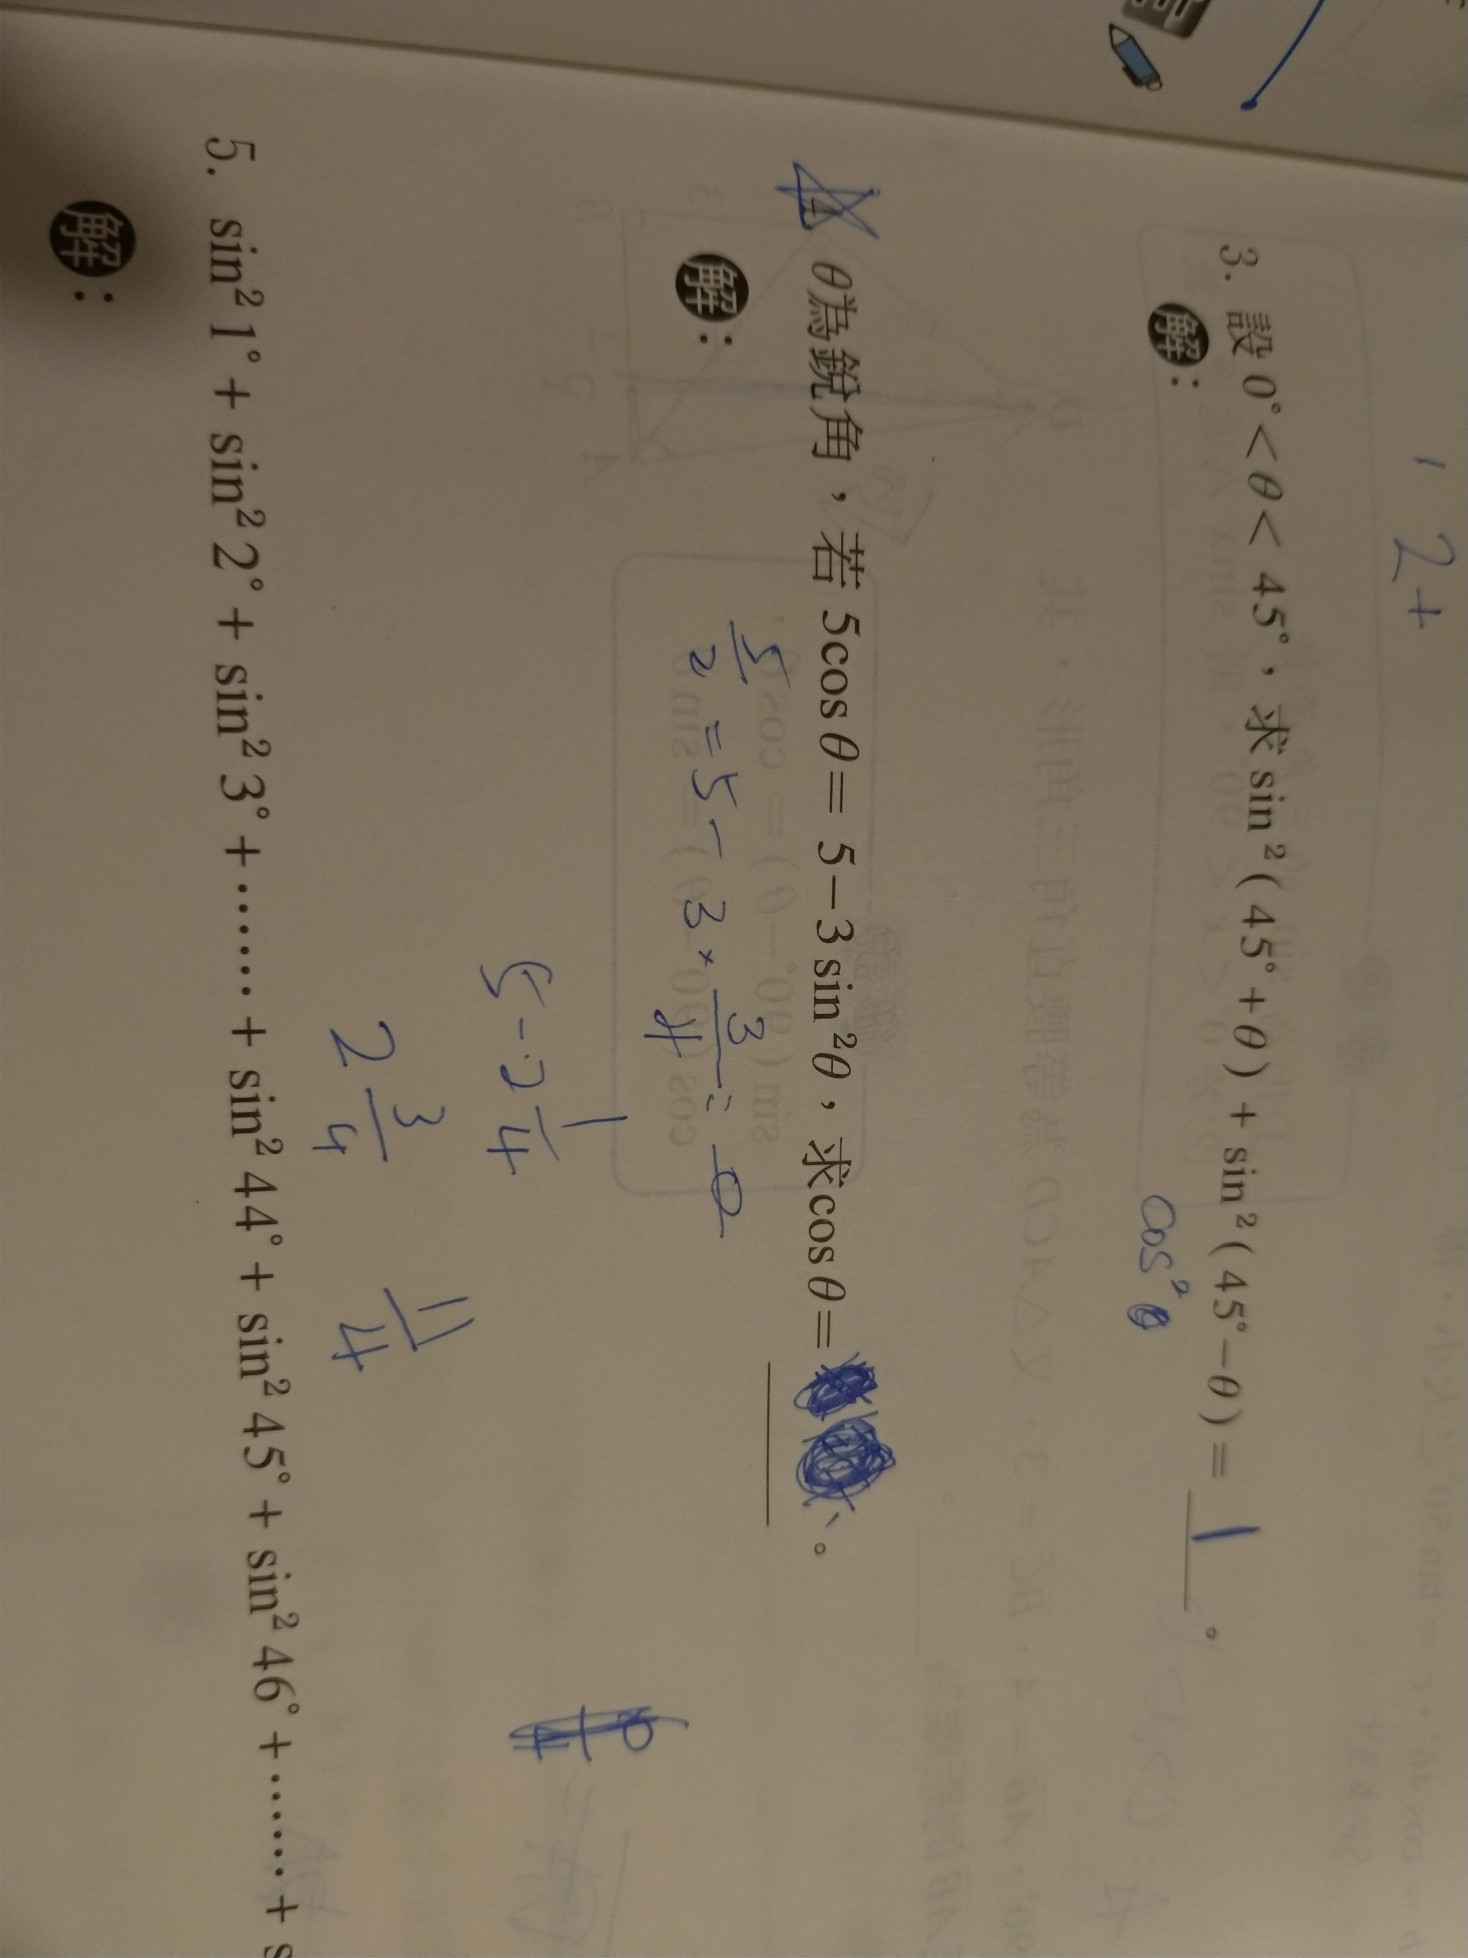 2+
3. 設 0°<θ< 45°，求 sin²(45°+θ)+sin²(45°−θ)= 1 。
解：
cos²θ
4 θ為銳角，若 5cosθ= 5−3sin²θ，求cosθ= 。
解：
5/2 = 5 - 3 × 3/4 =
5 - 2 1/4
2 3/4
11/4
5. sin²1°+sin²2°+sin²3°+……+sin²44°+sin²45°+sin²46°+……+s
解：